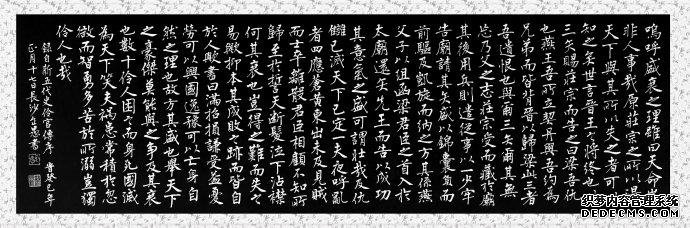 嗚呼盛衰之理雖曰天命豈
非人事哉原莊宗之所以得
天下與其所以失之者可以
知之矣世言晉王之將終也以
三矢賜莊宗而告之曰梁吾仇
也燕王吾所立契丹與吾約為
兄弟而皆背晉以歸梁此三者
吾遺恨也與爾三矢爾其無
忘乃父之志莊宗受而藏於廟
其後用兵則遣從事以一少牢
告廟請其矢盛以錦囊負而
前驅及凱旋而納之方其係燕
父子以組函梁君臣之首入於
太廟還矢先王而告以成功
其意氣之盛可謂壯哉及仇
讎已滅天下已定一夫夜呼亂
者四應蒼黃東出未及見賊
而士卒離散君臣相顧不知所
歸至於誓天斷髮泣下沾襟
何其衰也豈得之難而失之
易歟抑本其成敗之跡而皆自
於人歟書曰滿招損謙受益憂
勞可以興國逸豫可以亡身自
然之理也故方其盛也舉天下
之豪傑莫能與之爭及其衰
也數十伶人困之而身死國滅
為天下笑夫禍患常積於忽
微而智勇多苦於所溺豈獨
伶人也哉
錄自新五代史伶官傳序 癸巳年
正月十七日長沙左書